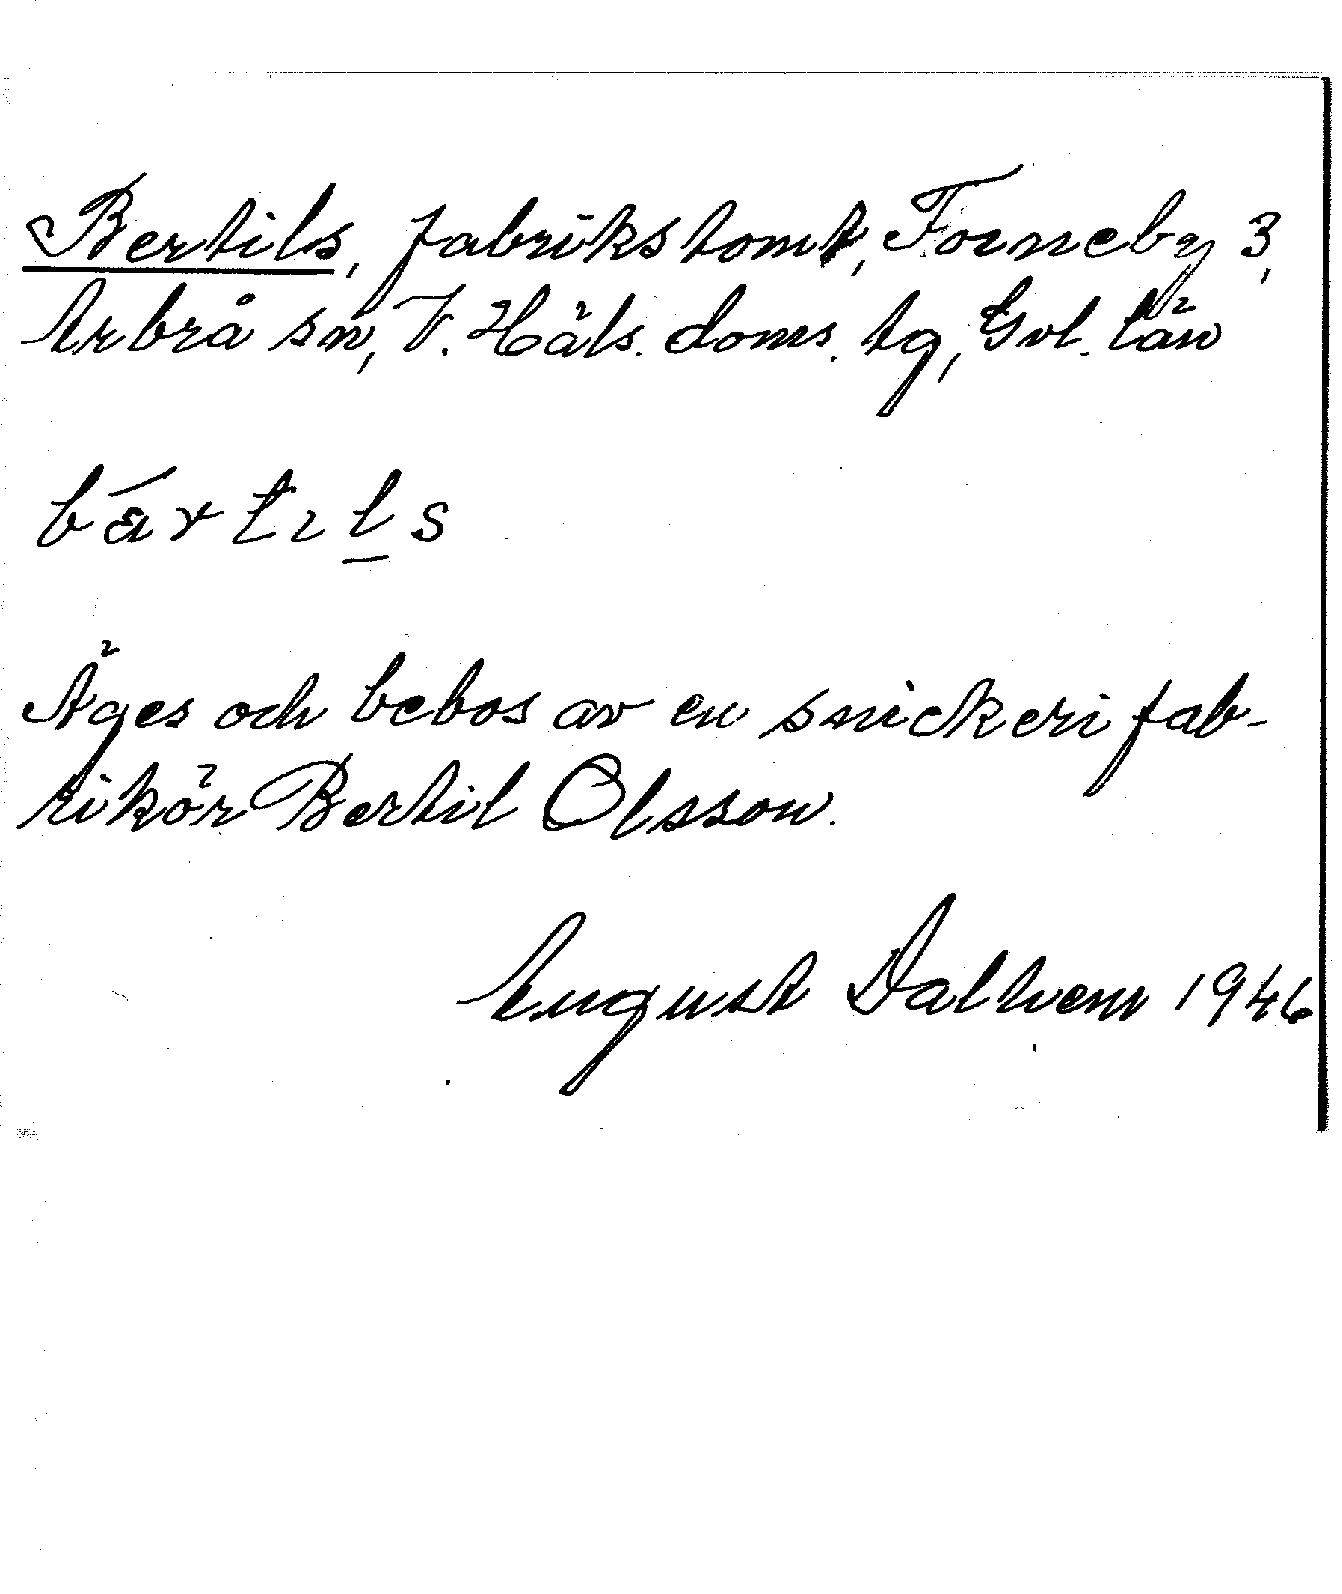 Bertils, fabrikstomt, Forneby 3,
Arbrå sn, V. Häls. doms. tg, Gvl. län
bä́rtıl̲s
Äges och bebos av en snickerifab-
rikör Bertil Olsson.
August Dalhem 1946